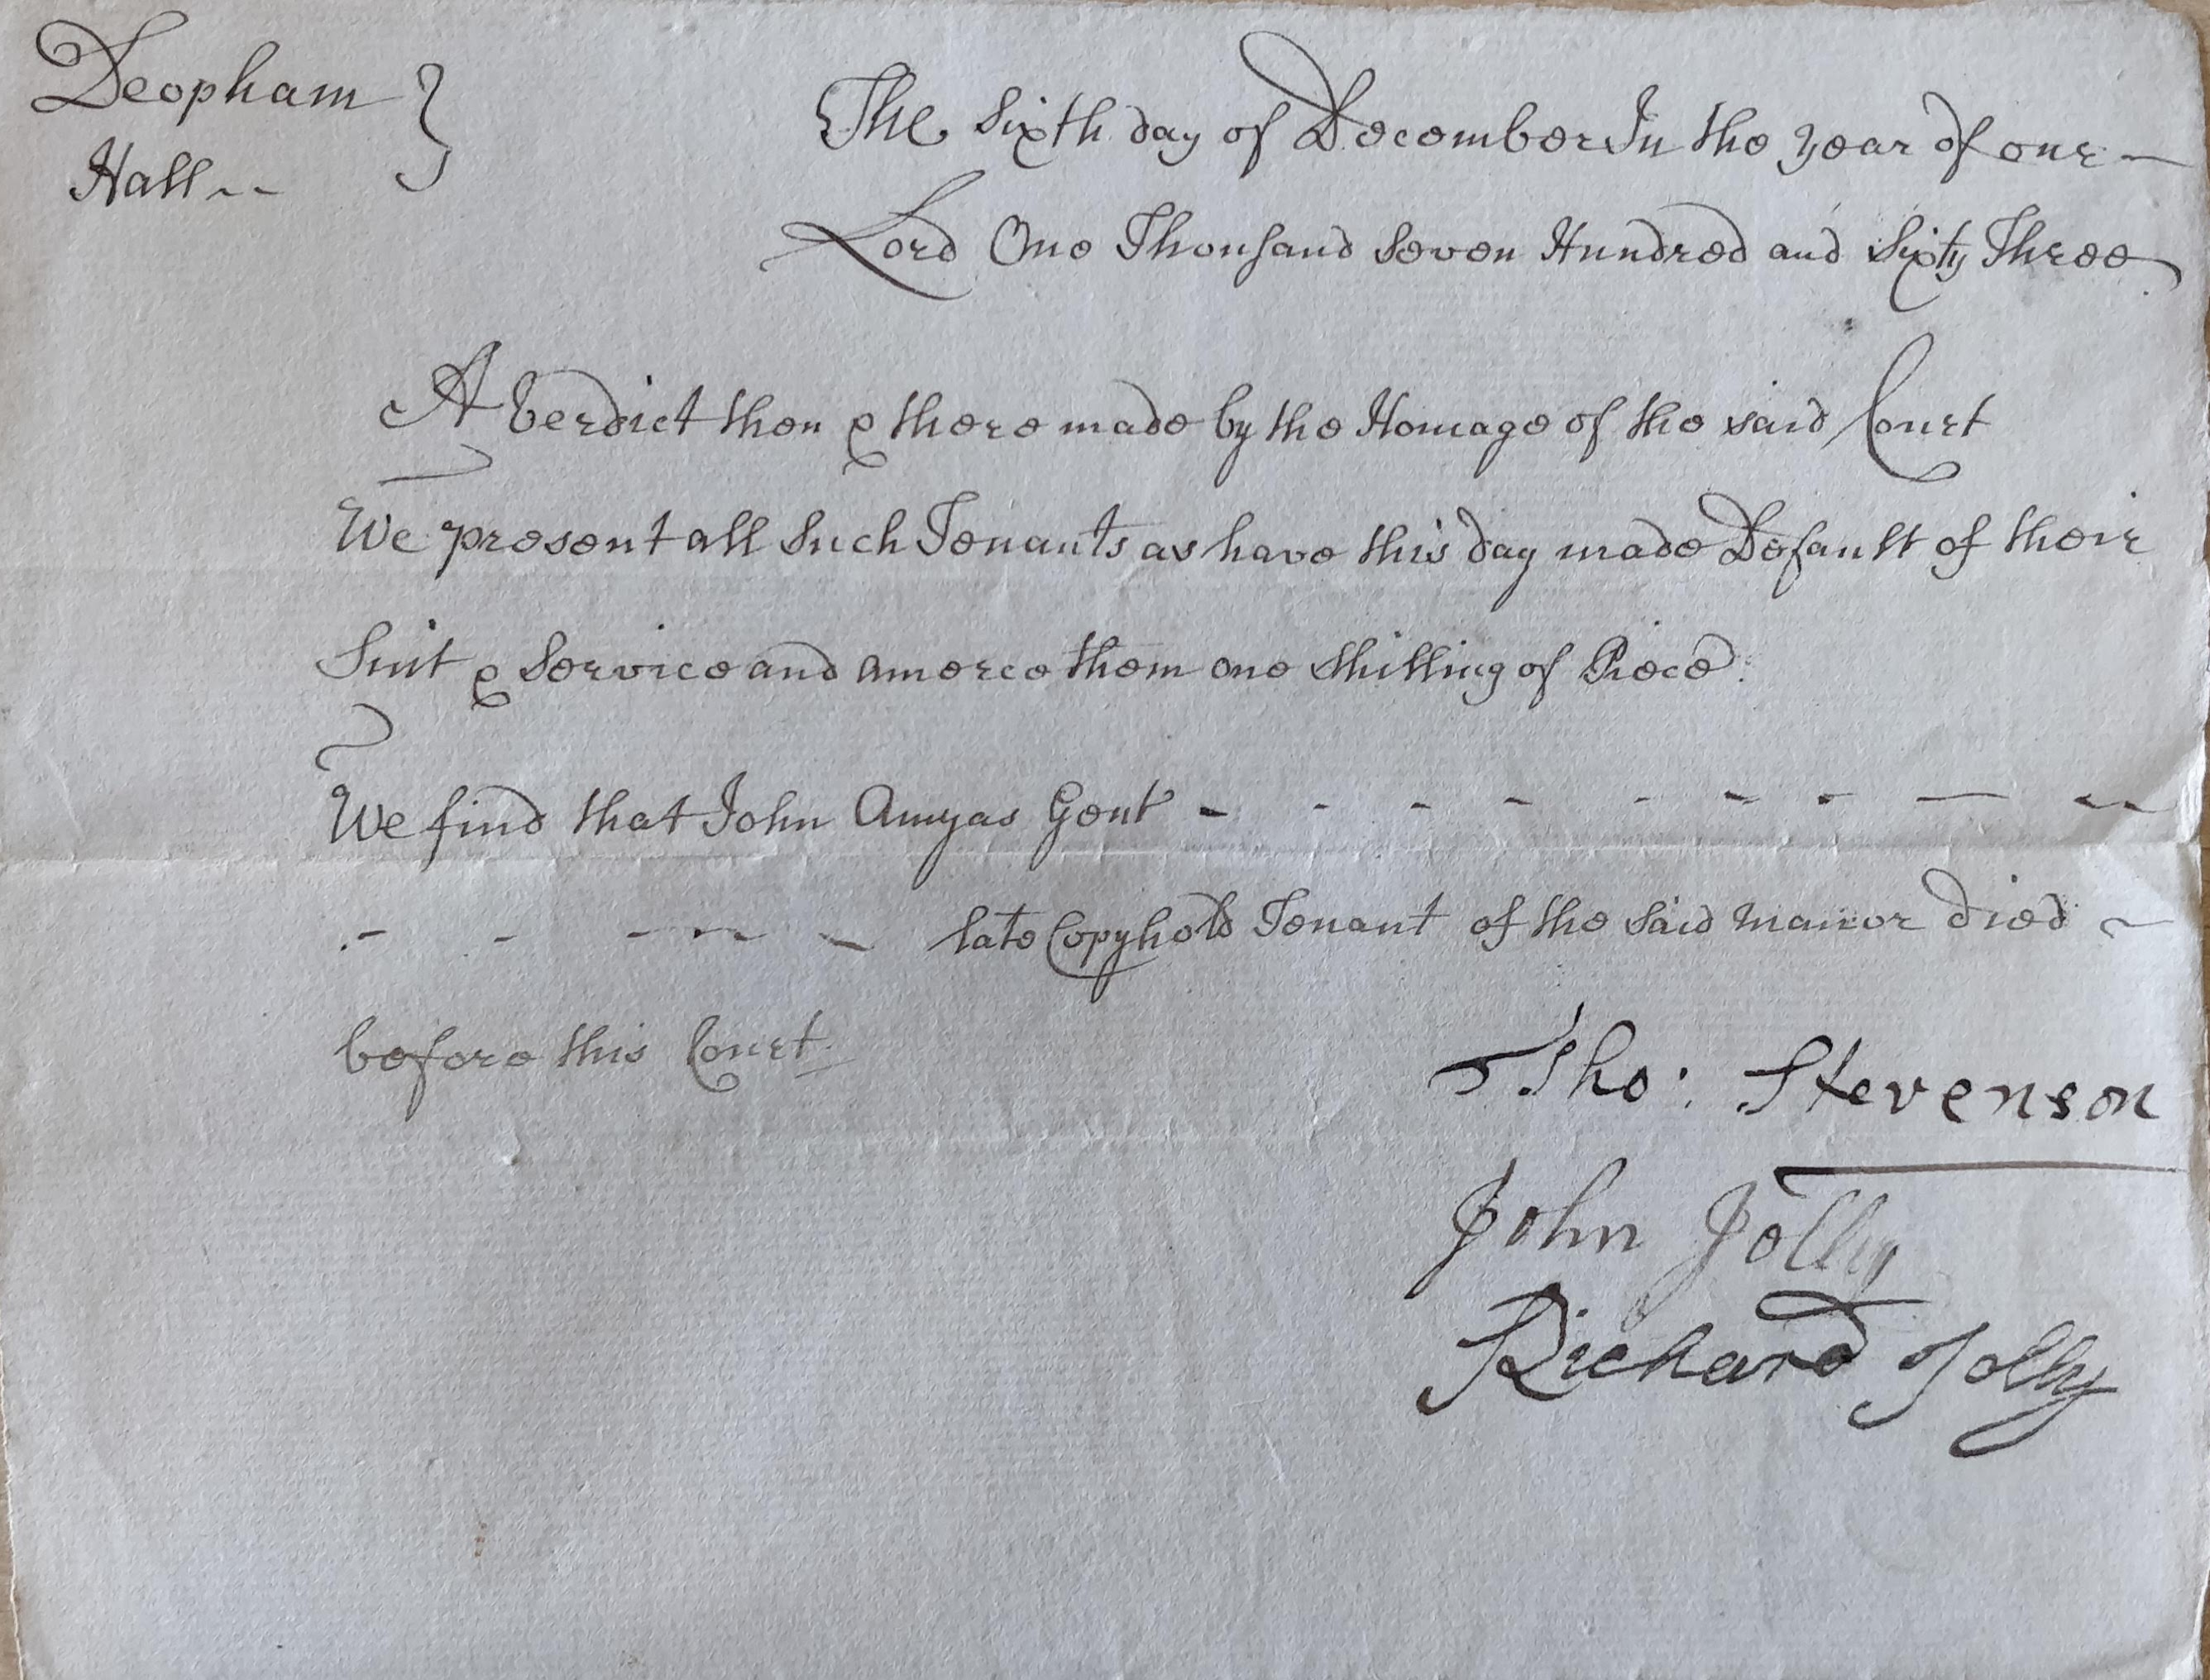 Deopham
Hall
The Sixth day of December In the year of our
Lord One Thousand Seven Hundred and Sixty Three
A Verdict then & there made by the Homage of the said Court
We present all Such Tenants as have this day made Default of their
Suit & Service and amerce them one Shilling of Piece.
We find that John Amyas Gent - - - - - - - - -
- - - - - - late Copyhold Tenant of the Said Mannor Died
before this Court.
Tho: Stevenson
John Jolly
Richard Jolly